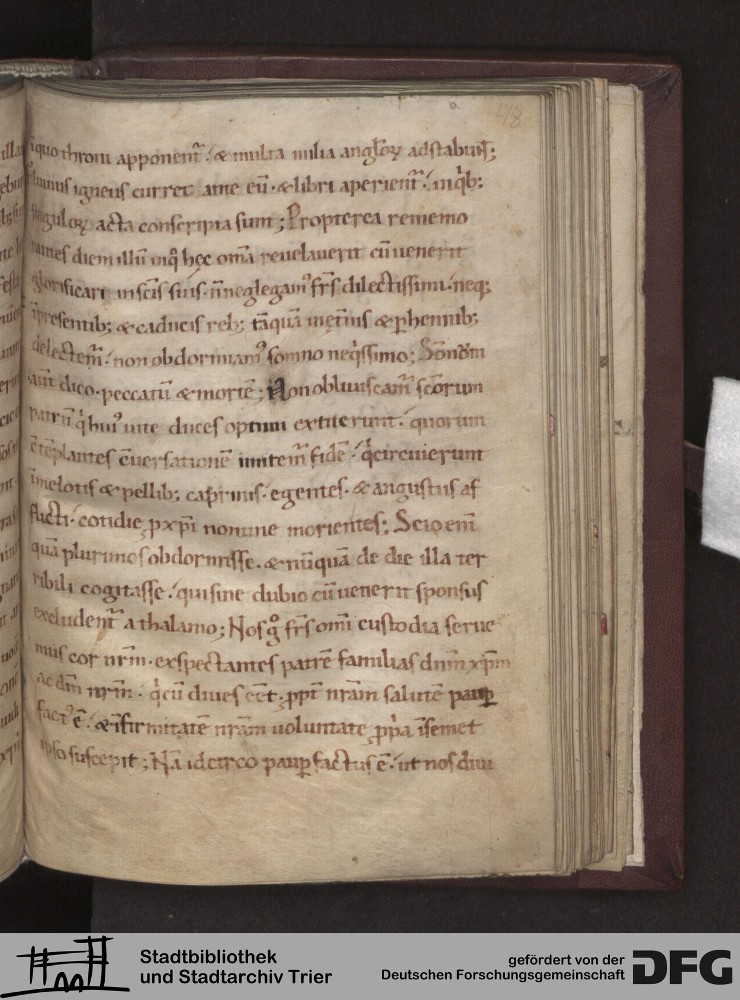 48
iquo throni apponent̄ ⁊ & multa milia angl̄oꝝ adstabun̄t;
fluuius igneus curret ante eū · & libri aperient̄ ⁊ inq̄b;
singuloꝝ acta conscripta sunt; Propterea rememo
rantes diem illū inq̊ hęc om̄a reuelauerit cū uenerit
glorificari insc̄is suis · n̄ neglegam᷒ fr̄s dilectissimi · neq;
īpresentib; & caducis reb; tāquā inęt̄nis & ꝑhennib;
delectem̄ · non obdormiam᷒ somno neq̊ssimo; Somnū
aut̄ dico · peccatū & mortē; Non obliuiscam̄ sc̄orum
patrū q̊ hui᷒ uite duces optimi extiterunt · quorum
c̄tēplantes c̄uersationē imitem̄ fidē · q̊ circuierunt
īmelotis & pellib; caprinis · egentes · & angustus af
flicti · cotidie ꝓ xp̄i nomine morientes; Scio enī
quā plurimos obdormisse · & nūquā de die illa ter
ribili cogitasse · qui sine dubio cū uenerit sponsus
excludent̄ a thalamo; Nos g̊ fr̄s omī custodia serue
mus cor nr̄m · exspectantes patrē familias dn̄m xp̄m
ac dm̄ nr̄m · q̊ cū diues eēt · ꝓpt̄ nr̄am salutē paup̄
fact᷒ ē · & īfirmitatē nr̄am uoluntate ꝓp̊a īsemet
ipso suscepit; Nā idcirco paup̄ factus ē · ut nos diui
illa
Stadtbibliothek
und Stadtarchiv Trier
gefördert von der
Deutschen Forschungsgemeinschaft
DFG